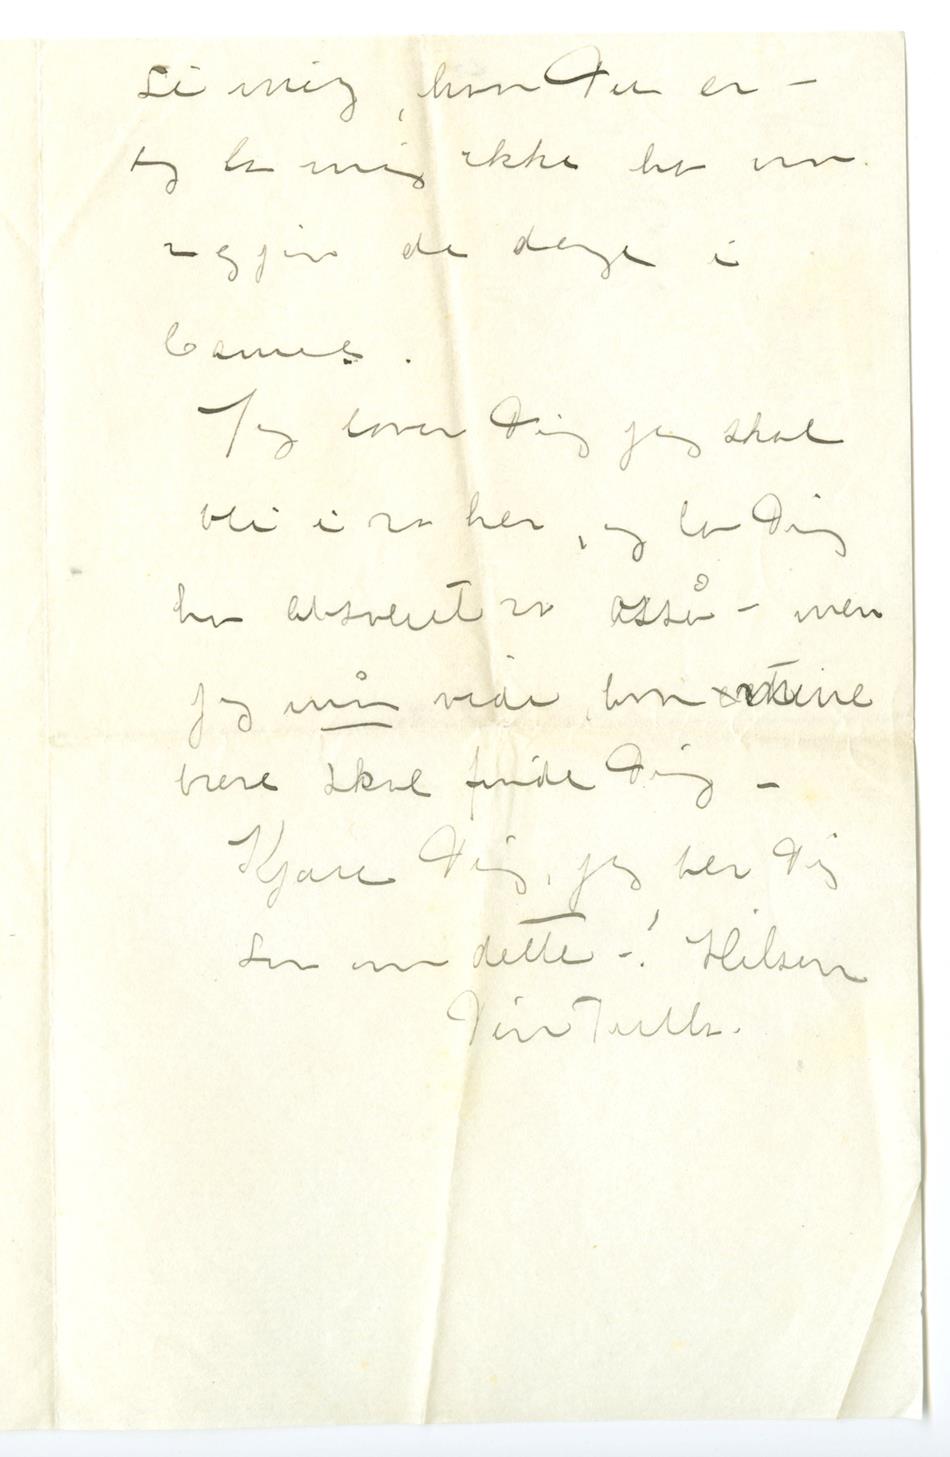 Si mig, hvor Du er –
og la mig ikke ha
igjen de dage i
Cannes.
Jeg lover Dig jeg skal
bli i ro her, og la Dig
ha absolut ro osså – men
jeg må vide, hvor
breve skal finde Dig –
Kjære Dig, jeg ber Dig
om dette –! Hilsen
Din Tulla.